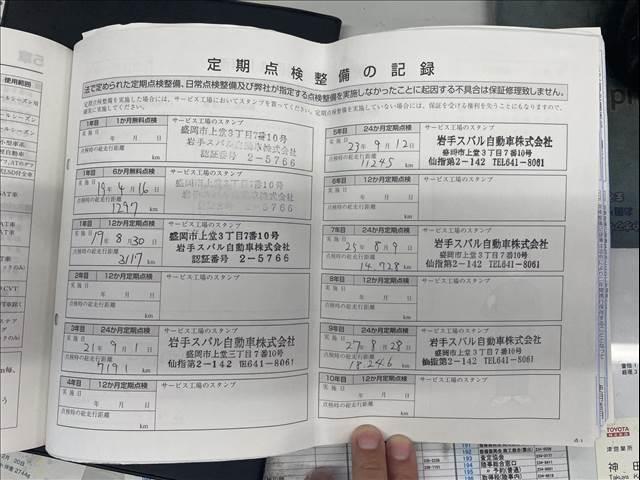 定期点検整備の記録
法で定められた定期点検整備、日常点検整備及び弊社が指定する点検整備を実施しなかったことに起因する不具合は保証修理致しません。
定期点検整備を実施した場合には、サービス工場においてスタンプを貰ってください。定期点検整備を実施していない場合には、保証を受ける権利を失うことにもなりますので、
確実に実施してください。
1年目 1か月無料点検 サービス工場のスタンプ
実施日 年 月 日
点検時の総走行距離
km
盛岡市上堂3丁目7番10号
岩手スバル自動車株式会社
認証番号 2-5766
1年目 6か月無料点検 サービス工場のスタンプ
実施日 19年4月16日
点検時の総走行距離
1297 km
盛岡市上堂3丁目7番10号
岩手スバル自動車株式会社
認証番号 2-5766
1年目 12か月定期点検 サービス工場のスタンプ
実施日 19年8月30日
点検時の総走行距離
3117 km
盛岡市上堂3丁目7番10号
岩手スバル自動車株式会社
認証番号 2-5766
2年目 12か月定期点検 サービス工場のスタンプ
実施日 年 月 日
点検時の総走行距離
km
3年目 24か月定期点検 サービス工場のスタンプ
実施日 21年9月1日
点検時の総走行距離
7191 km
岩手スバル自動車株式会社
盛岡市上堂三丁目7番10号
仙指第2-142 TEL641-8061
4年目 12か月定期点検 サービス工場のスタンプ
実施日 年 月 日
点検時の総走行距離
km
5年目 24か月定期点検 サービス工場のスタンプ
実施日 23年9月12日
点検時の総走行距離
11245 km
岩手スバル自動車株式会社
盛岡市上堂3丁目7番10号
仙指第2-142 TEL641-8061
6年目 12か月定期点検 サービス工場のスタンプ
実施日 年 月 日
点検時の総走行距離
km
7年目 24か月定期点検 サービス工場のスタンプ
実施日 25年8月9日
点検時の総走行距離
14.728 km
岩手スバル自動車株式会社
盛岡市上堂3丁目7番10号
仙指第2-142 TEL641-8061
8年目 12か月定期点検 サービス工場のスタンプ
実施日 年 月 日
点検時の総走行距離
km
9年目 24か月定期点検 サービス工場のスタンプ
実施日 27年8月28日
点検時の総走行距離
18.246 km
岩手スバル自動車株式会社
盛岡市上堂3丁目7番10号
仙指第2-142 TEL641-8061
10年目 12か月定期点検 サービス工場のスタンプ
実施日 年 月 日
点検時の総走行距離
km
使用範囲
TOYOTA
津志営業所
神田